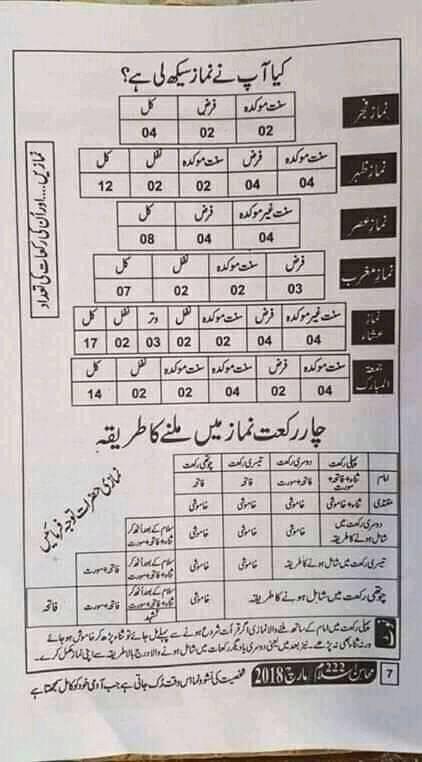 کیا آپ نے نماز سیکھ لی ہے؟
نمازیں.... اور اُن کی رکعات کی تعداد
نماز فجر
سنت موکدہ فرض کل
02 02 04
نماز ظہر
سنت موکدہ فرض سنت موکدہ نفل کل
04 04 02 02 12
نماز عصر
سنت غیر موکدہ فرض کل
04 04 08
نماز مغرب
فرض سنت موکدہ نفل کل
03 02 02 07
نماز عشاء
سنت غیر موکدہ فرض سنت موکدہ نفل وتر نفل کل
04 04 02 02 03 02 17
جمعۃ المبارک
سنت موکدہ فرض سنت موکدہ سنت موکدہ نفل کل
04 02 04 02 02 14
چار رکعت نماز میں ملنے کا طریقہ
نمازی حضرات توجہ فرمائیں
پہلی رکعت دوسری رکعت تیسری رکعت چوتھی رکعت
امام ثناء + فاتحہ + سورت فاتحہ + سورت فاتحہ فاتحہ
مقتدی ثناء + خاموشی خاموشی خاموشی خاموشی
دوسری رکعت میں شامل ہونے کا طریقہ خاموشی خاموشی خاموشی سلام کے بعد اٹھ کر ثناء + فاتحہ + سورت
تیسری رکعت میں شامل ہونے کا طریقہ خاموشی خاموشی سلام کے بعد اٹھ کر ثناء + فاتحہ + سورت فاتحہ + سورت
چوتھی رکعت میں شامل ہونے کا طریقہ خاموشی سلام کے بعد اٹھ کر ثناء + فاتحہ + سورت + تشہد فاتحہ + سورت فاتحہ
پہلی رکعت میں امام کے ساتھ ملنے والا نمازی اگر قرأت شروع ہونے سے پہلے مل جائے تو ثناء پڑھ کر خاموش ہو جائے
ورنہ ثناء بھی نہ پڑھے۔ نیز بعد میں یعنی دوسری یا دیگر رکعات میں شامل ہونے والا درج بالا طریقہ سے اپنی نماز مکمل کرے۔
7 محاسن اسلام 222 مارچ 2018 شخصیت کی نشوونما اس وقت رک جاتی ہے جب آدمی خود کو کامل سمجھتا ہے